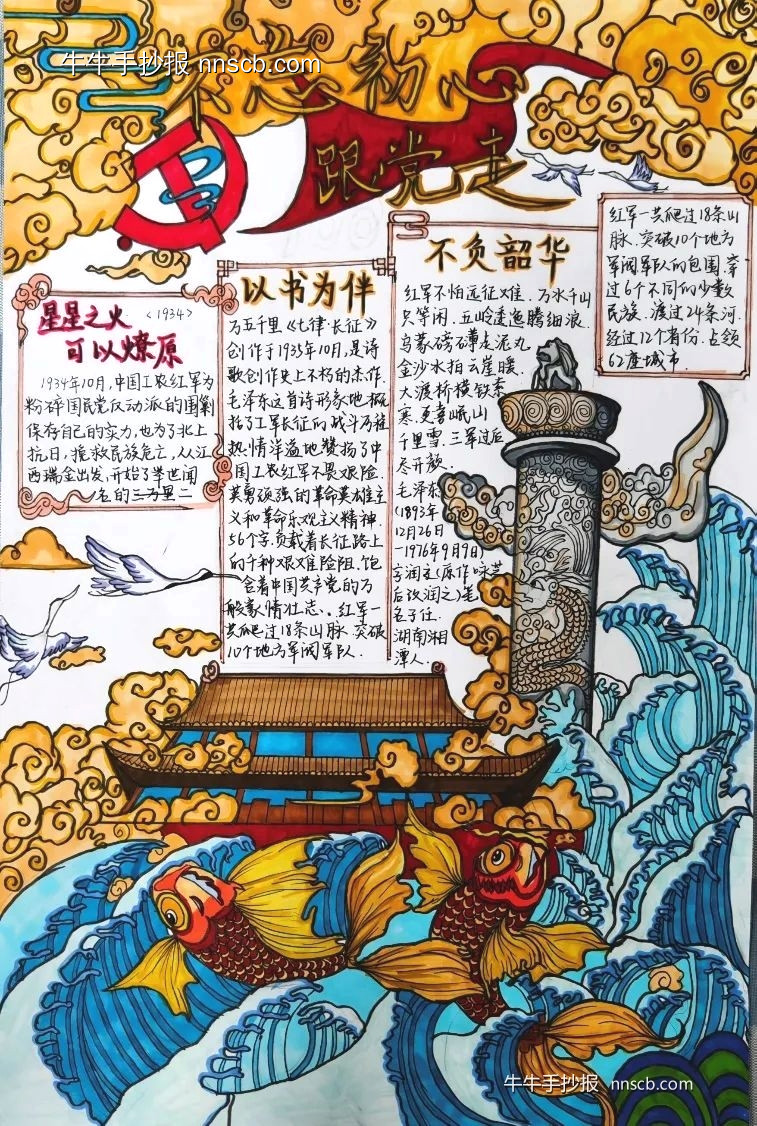 牛牛手抄报 nnscb.com
不忘初心
跟党走
星星之火 <1934>
可以燎原
1934年10月,中国工农红军为
粉碎国民党反动派的围剿
保存自己的实力,也为了北上
抗日,挽救民族危亡,从江
西瑞金出发,开始了举世闻
名的二万里二
以书为伴
万五千里《七律·长征》
创作于1935年10月,是诗
歌创作史上不朽的杰作.
毛泽东这首诗形象地概
括了工军长征的战斗历程
热情洋溢地赞扬了中
国工农红军不畏艰险.
英勇顽强的革命英雄主
义和革命乐观主义精神
56个字.负载着长征路上
的千种艰难险阻.饱
含着中国共产党的万
般豪情壮志.红军一
共爬过18条山脉.突破
10个地方军阀军队.
不负韶华
红军不怕远征难.万水千山
只等闲.五岭逶迤腾细浪.
乌蒙磅礴走泥丸
金沙水拍云崖暖.
大渡桥横铁索
寒.更喜岷山
千里雪.三军过后
尽开颜.
毛泽东
(1893年
12月26日
-1976年9月9日)
字润之(原作咏芝
后改润之)笔
名子任.
湖南湘
潭人.
红军一共爬过18条山
脉.突破10个地方
军阀军队的包围.穿
过6个不同的少数
民族.渡过24条河.
经过12个省份.占领
62座城市.
牛牛手抄报 nnscb.com